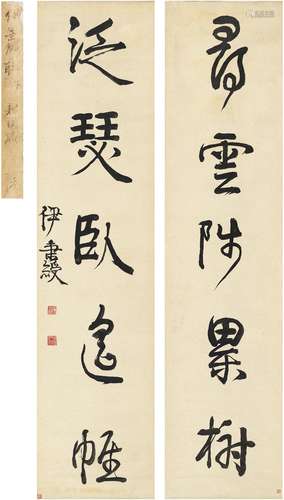 尋雲陟累榭
泛瑟臥遙帷
伊秉綬